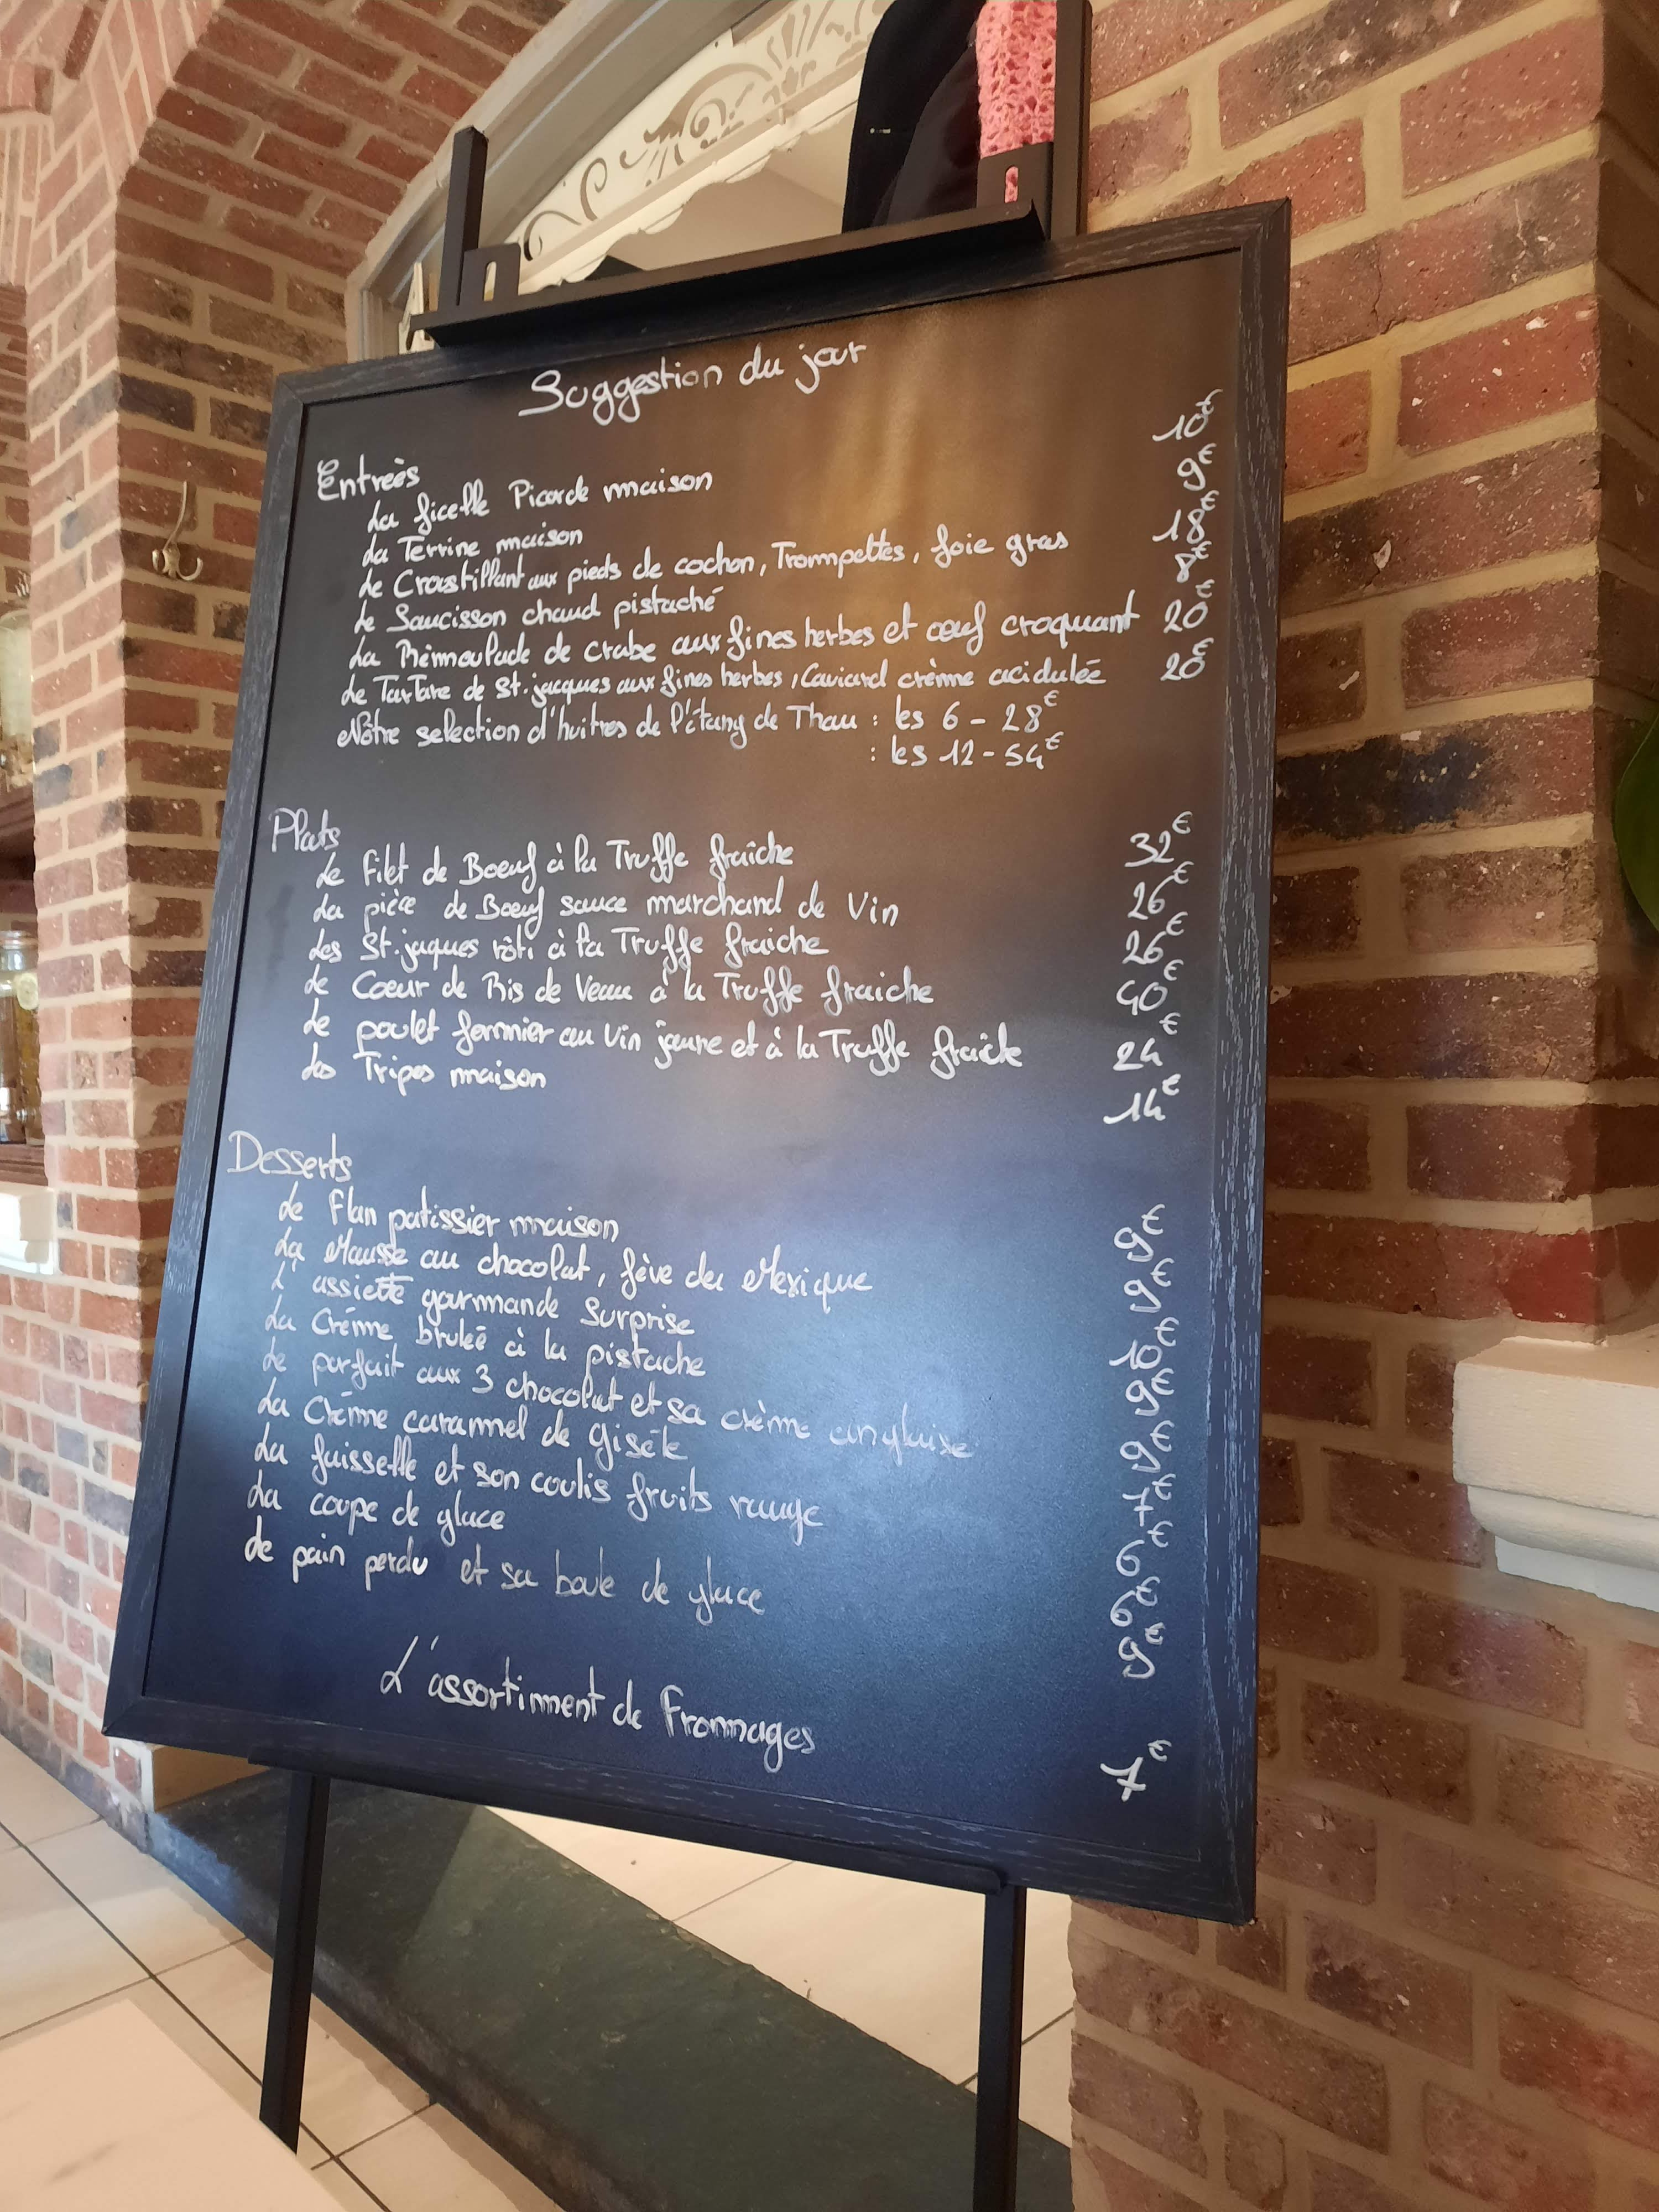 Suggestion du jour
Entreès
La ficelle Picarde maison 10€
La Terrine maison 9€
Le Croustillant aux pieds de cochon, Trompettes, foie gras 18€
Le Saucisson chaud pistaché 8€
La Rémoulade de crabe aux fines herbes et oeuf croquant 20€
Le Tartare de St.jacques aux fines herbes, Caviard crème acidulée 20€
Nôtre selection d'huitres de l'étang de Thau : les 6 - 28€
: les 12 - 54€
Plats
Le Filet de Boeuf à la Truffe fraîche 32€
La pièce de Boeuf sauce marchand de Vin 26€
Les St.jaques rôti à la Truffe fraiche 26€
Le Coeur de Ris de Veau à la Truffe fraiche 40€
Le poulet fermier au Vin jaune et à la Truffe fraiche 24€
Les Tripes maison 14€
Desserts
Le Flan patissier maison 9€
La Mousse au chocolat, fève du Mexique 9€
L'assiette gourmande Surprise 10€
La Crème bruleé à la pistache 9€
Le parfait aux 3 chocolat et sa crème anglaise 9€
La Crème caramel de Gisèle 7€
La faisselle et son coulis fruits rouge 6€
La coupe de glace 6€
Le pain perdu et sa boule de glace 9€
L'assortiment de Fromages 7€